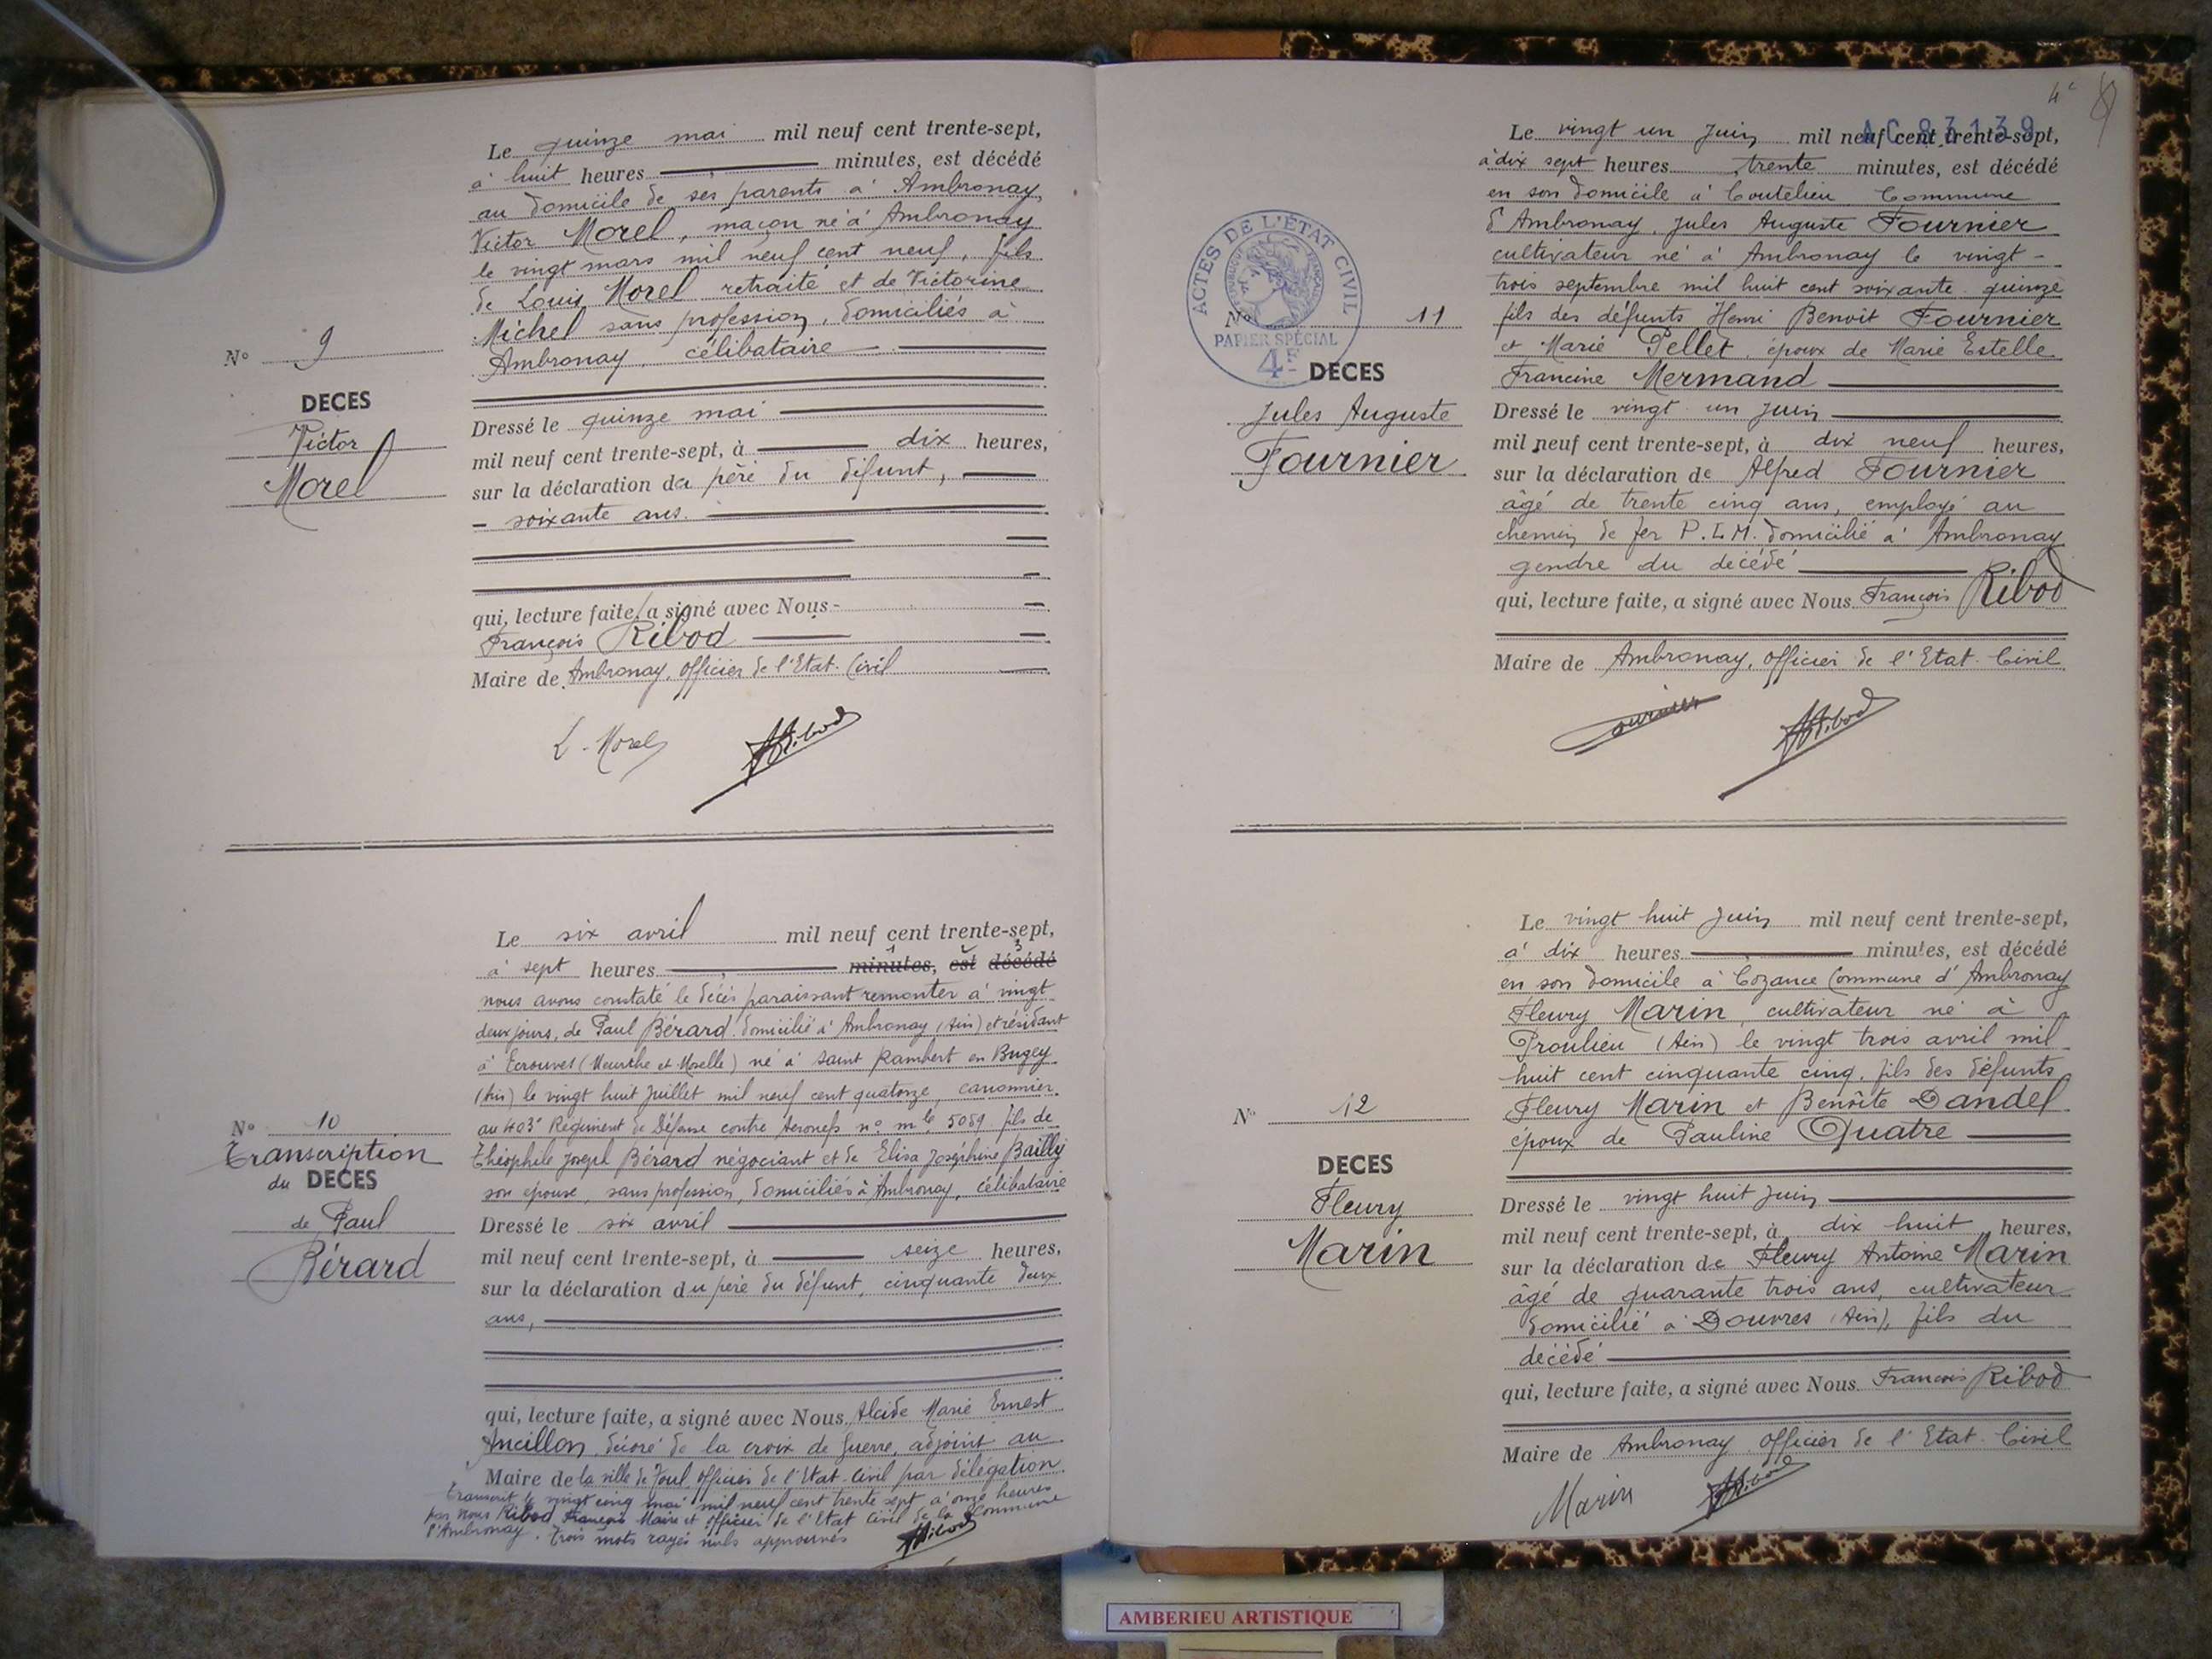 Le quinze mai mil neuf cent trente-sept,
à huit heures minutes, est décédé
au domicile de ses parents à Ambronay
Victor Morel, maçon né à Ambronay
le vingt mars mil neuf cent neuf, fils
de Louis Morel retraité et de Victorine
Michel sans profession, domiciliés à
Ambronay, célibataire
N° 9
DECES
Victor
Morel
Dressé le quinze mai
mil neuf cent trente-sept, à dix heures,
sur la déclaration du père du défunt,
soixante ans.
qui, lecture faite, a signé avec Nous
François Ribod
Maire de Ambronay, officier de l'Etat-Civil
L. Morel
Ribod
Le six avril mil neuf cent trente-sept,
à sept heures minutes, est décédé
nous avons constaté le décès paraissant remonter à vingt
deux jours, de Paul Bérard domicilié à Ambronay (Ain) et résidant
à Ecrouves (Meurthe et Moselle) né à Saint Rambert en Bugey
(Ain) le vingt huit juillet mil neuf cent quatorze, canonnier
au 403e Régiment de Défense contre Aéronefs n° mle 5059 fils de
Théophile Joseph Bérard négociant et de Elisa Joséphine Bailly
son épouse, sans profession, domiciliés à Ambronay, célibataire
N° 10
Transcription
du DECES
de Paul
Bérard
Dressé le six avril
mil neuf cent trente-sept, à seize heures,
sur la déclaration du père du défunt, cinquante deux
ans,
qui, lecture faite, a signé avec Nous Alcide Marie Ernest
Ancillon, décoré de la croix de Guerre, adjoint au
Maire de la ville de Toul officier de l'Etat-civil par délégation.
Transcrit le vingt cinq mai mil neuf cent trente sept à onze heures
par Nous Ribod François Maire et officier de l'Etat Civil de la Commune
d'Ambronay. Trois mots rayés nuls approuvés
Ribod
4e
AC 83139
Le vingt un Juin mil neuf cent trente-sept,
à dix sept heures trente minutes, est décédé
en son domicile à Coutelieu Commune
d'Ambronay, Jules Auguste Fournier
cultivateur né à Ambronay le vingt-
trois septembre mil huit cent soixante quinze
fils des défunts Henri Benoit Fournier
et Marie Pellet, époux de Marie Estelle
Francine Mermand
ACTES DE L'ÉTAT CIVIL
PAPIER SPÉCIAL
4F
N° 11
DECES
Jules Auguste
Fournier
Dressé le vingt un Juin
mil neuf cent trente-sept, à dix neuf heures,
sur la déclaration de Alfred Fournier
âgé de trente cinq ans, employé au
chemin de fer P.L.M. domicilié à Ambronay
gendre du décédé
qui, lecture faite, a signé avec Nous François Ribod
Maire de Ambronay, officier de l'Etat-Civil
Fournier
Ribod
Le vingt huit Juin mil neuf cent trente-sept,
à dix heures minutes, est décédé
en son domicile à Cozance Commune d'Ambronay
Fleury Marin, cultivateur né à
Proulieu (Ain) le vingt trois avril mil
huit cent cinquante cinq, fils des défunts
Fleury Marin et Benoîte Dandel
époux de Pauline Quatre
N° 12
DECES
Fleury
Marin
Dressé le vingt huit Juin
mil neuf cent trente-sept, à dix huit heures,
sur la déclaration de Fleury Antoine Marin
âgé de quarante trois ans, cultivateur
domicilié à Douvres (Ain), fils du
décédé
qui, lecture faite, a signé avec Nous François Ribod
Maire de Ambronay officier de l'Etat-Civil
Marin
Ribod
AMBERIEU ARTISTIQUE